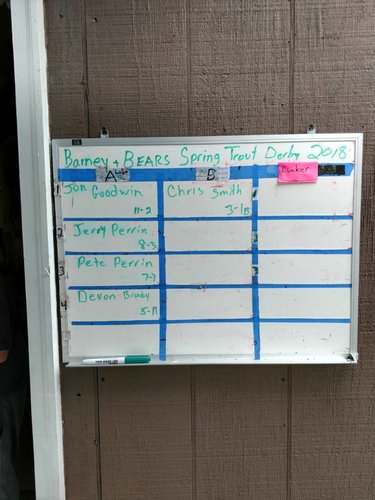 Barney + BEARS Spring Trout Derby 2018
A B Lunker
1 Jon Goodwin
11-2
Chris Smith
2 Jerry Perrin
8-3
3 Pete Perrin
7-7
Devon